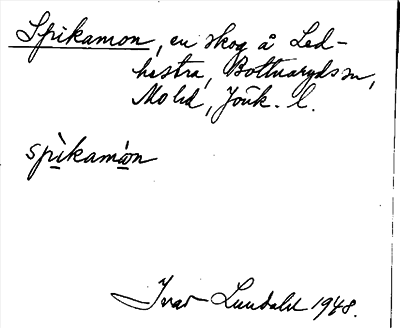 Spikamon, en skog å Led-
hestra, Bottnaryds sn,
Mo hd, Jönk. l.
spìkamòn
Ivar Lundahl 1948.